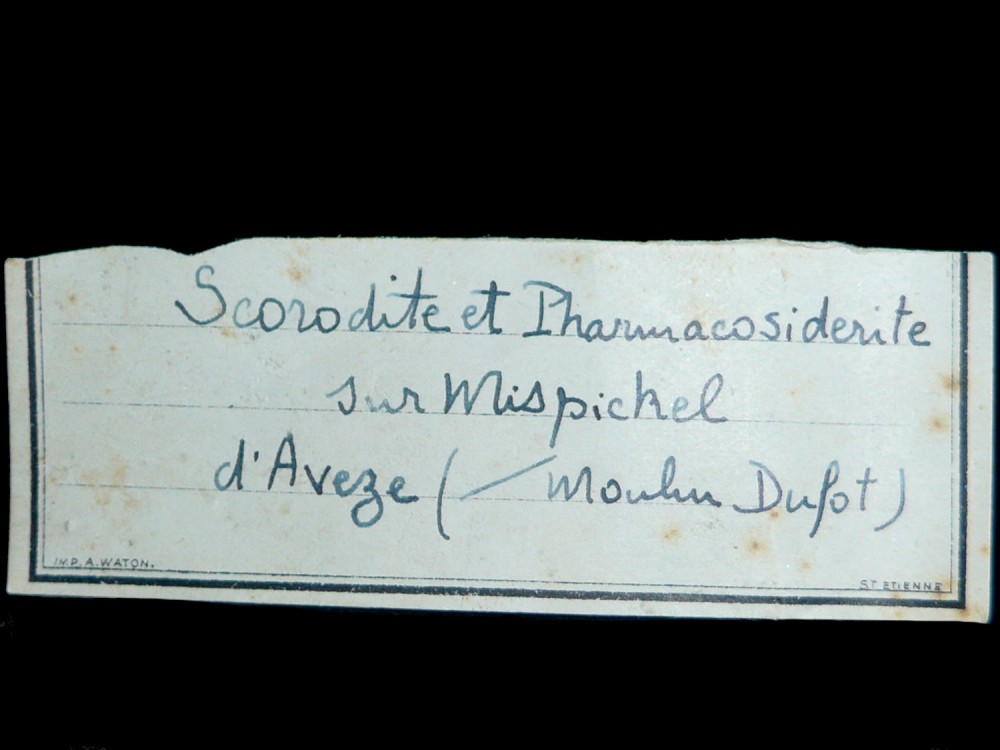 Scorodite et Pharmacosiderite
sur Mispickel
d'Aveze (— Moulin Dufot)
IMP. A. WATON.
ST ETIENNE